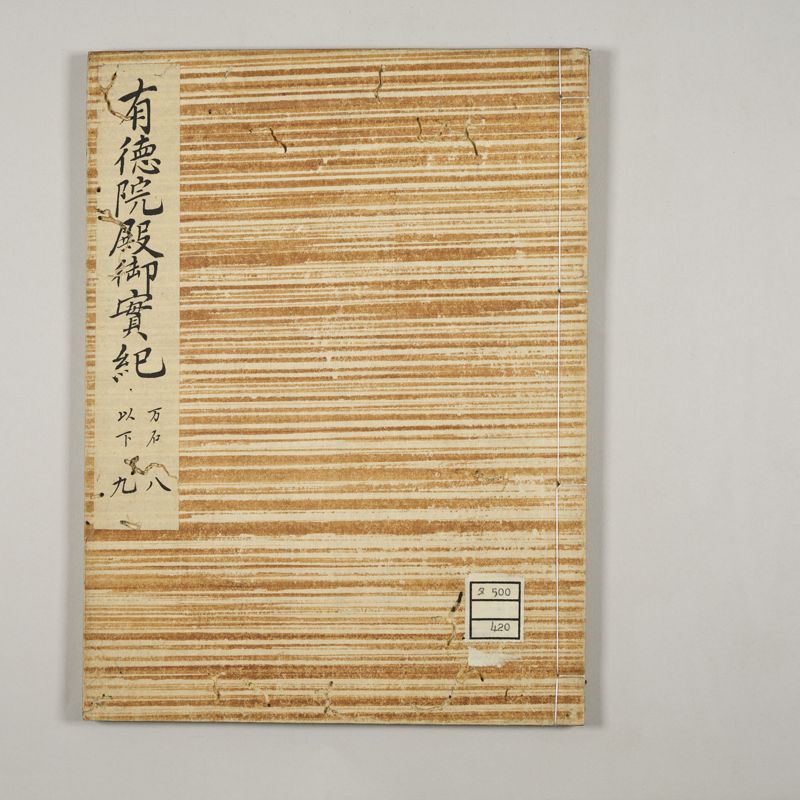 有徳院殿御實紀
万石
以下
八
九
タ 500
420